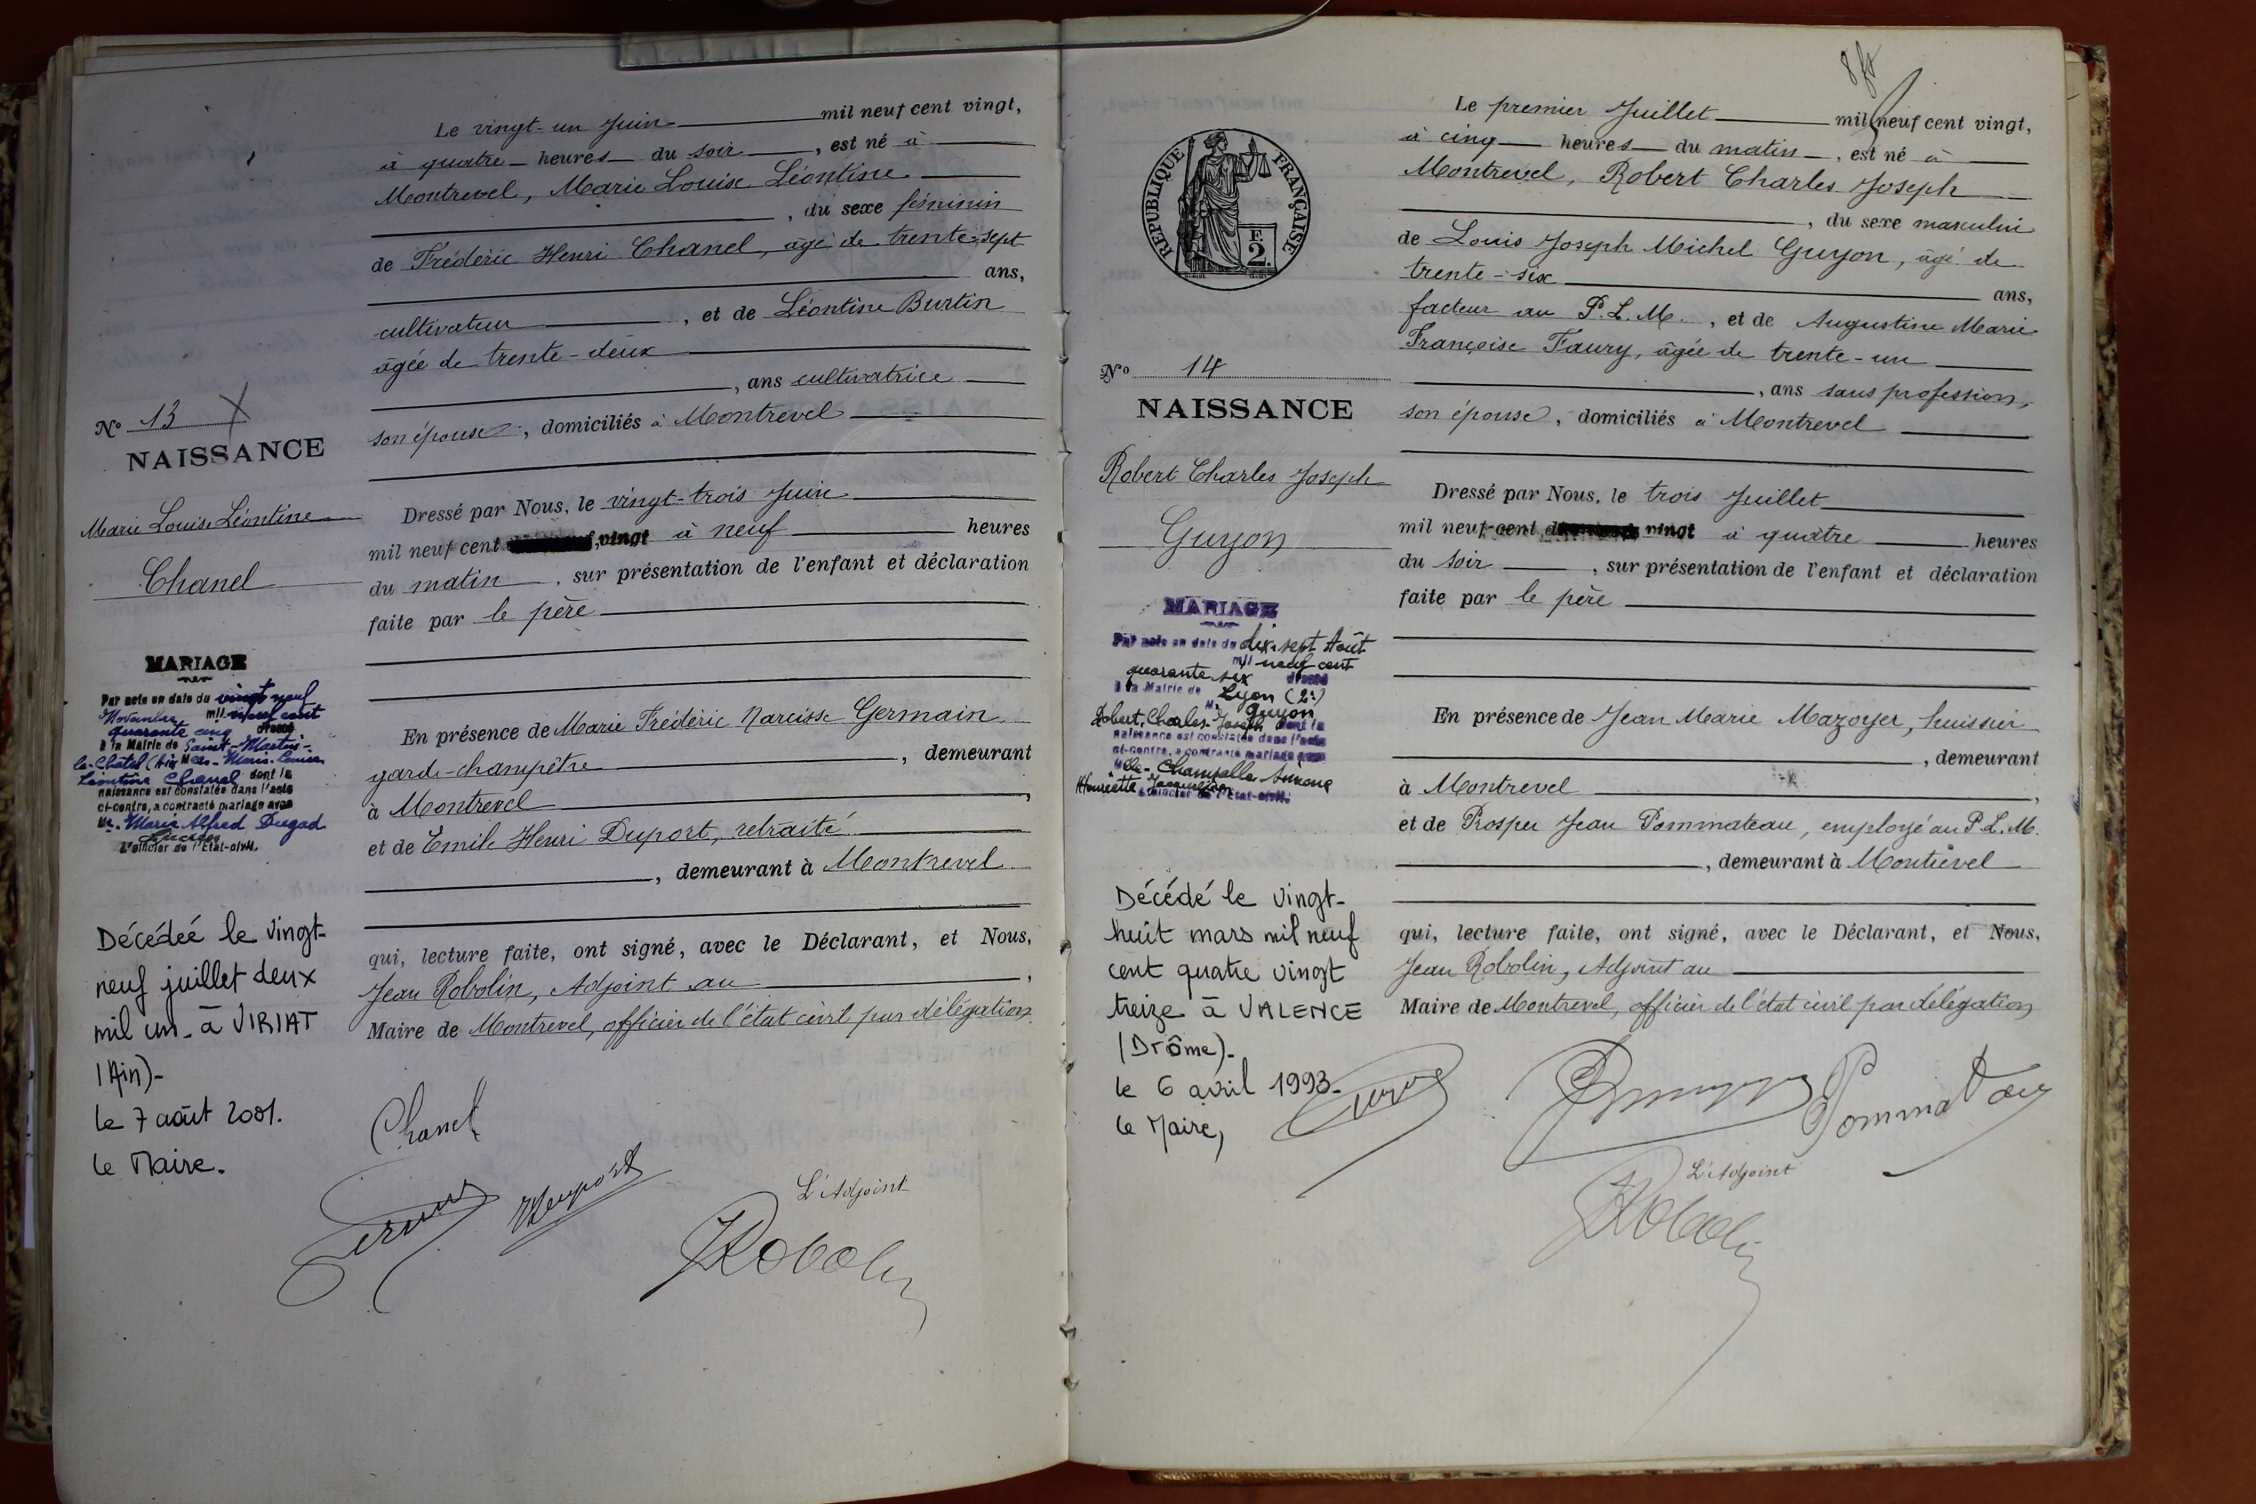 N° 13
NAISSANCE
Marie Louise Léontine
Chanel
MARIAGE
Par acte en date du vingt neuf
Novembre mil neuf cent
quarante cinq dressé
à la Mairie de Saint-Martin-
le-Châtel (Ain) Melle Marie-Louise
Léontine Chanel dont la
naissance est constatée dans l'acte
ci-contre, a contracté mariage avec
Mr. Marie Alfred Dugad
L'officier de l'Etat-civil.
Décédée le vingt-
neuf juillet deux
mil un. à VIRIAT
(Ain)-
le 7 août 2001.
le Maire.
Le vingt-un Juin mil neuf cent vingt,
à quatre heures du soir, est né à
Montrevel, Marie Louise Léontine
, du sexe féminin
de Frédéric Henri Chanel, âgé de trente-sept
ans,
cultivateur, et de Léontine Burtin
âgée de trente-deux
, ans cultivatrice
son épouse, domiciliés à Montrevel
Dressé par Nous, le vingt-trois Juin
mil neuf cent vingt à neuf heures
du matin, sur présentation de l'enfant et déclaration
faite par le père
En présence de Marie Frédéric Narcisse Germain
garde-champêtre, demeurant
à Montrevel,
et de Emile Henri Duport, retraité
, demeurant à Montrevel
qui, lecture faite, ont signé, avec le Déclarant, et Nous,
Jean Robolin, Adjoint au,
Maire de Montrevel, officier de l'état civil par délégation.
Chanel
L'Adjoint
JRobolin
REPUBLIQUE FRANÇAISE
E
2.
N° 14
NAISSANCE
Robert Charles Joseph
Guyon
MARIAGE
Par acte en date du dix-sept Août
mil neuf cent
quarante six dressé
à la Mairie de Lyon (2e)
M. Guyon
Robert, Charles-Joseph dont la
naissance est constatée dans l'acte
ci-contre, a contracté mariage avec
Melle Champalle Simone
Henriette Jacqueline
L'officier de l'Etat-civil.
Décédé le vingt-
huit mars mil neuf
cent quatre vingt
treize à VALENCE
(Drôme)-
le 6 avril 1993.
le Maire,
Le premier Juillet mil neuf cent vingt,
à cinq heures du matin, est né à
Montrevel, Robert Charles Joseph
, du sexe masculin
de Louis Joseph Michel Guyon, âgé de
trente-six ans,
facteur au P.L.M., et de Augustine Marie
Françoise Faury, âgée de trente-un
, ans sans profession,
son épouse, domiciliés à Montrevel
Dressé par Nous, le trois Juillet
mil neuf cent vingt à quatre heures
du soir, sur présentation de l'enfant et déclaration
faite par le père
En présence de Jean Marie Mazoyer, huissier
, demeurant
à Montrevel,
et de Prosper Jean Pommateau, employé au P.L.M.
, demeurant à Montrevel
qui, lecture faite, ont signé, avec le Déclarant, et Nous,
Jean Robolin, Adjoint au
Maire de Montrevel, officier de l'état civil par délégation
Pommatau
L'Adjoint
JRobolin